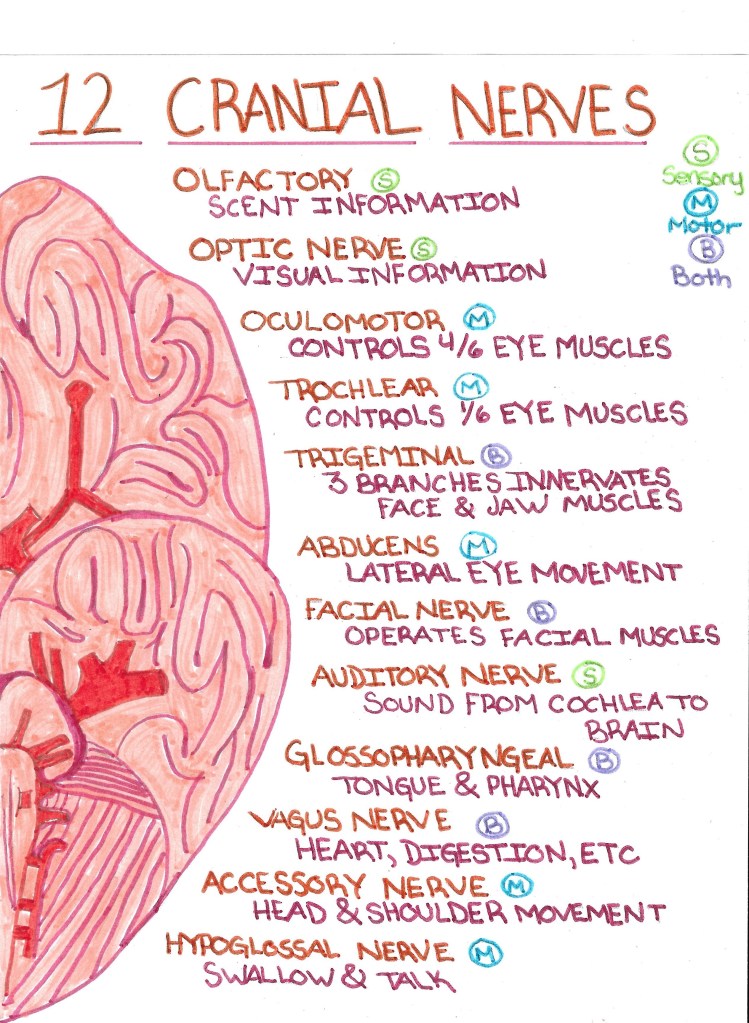 12 CRANIAL NERVES
S
Sensory
M
Motor
B
Both
OLFACTORY S
SCENT INFORMATION
OPTIC NERVE S
VISUAL INFORMATION
OCULOMOTOR M
CONTROLS 4/6 EYE MUSCLES
TROCHLEAR M
CONTROLS 1/6 EYE MUSCLES
TRIGEMINAL B
3 BRANCHES INNERVATES
FACE & JAW MUSCLES
ABDUCENS M
LATERAL EYE MOVEMENT
FACIAL NERVE B
OPERATES FACIAL MUSCLES
AUDITORY NERVE S
SOUND FROM COCHLEA TO
BRAIN
GLOSSOPHARYNGEAL B
TONGUE & PHARYNX
VAGUS NERVE B
HEART, DIGESTION, ETC
ACCESSORY NERVE M
HEAD & SHOULDER MOVEMENT
HYPOGLOSSAL NERVE M
SWALLOW & TALK